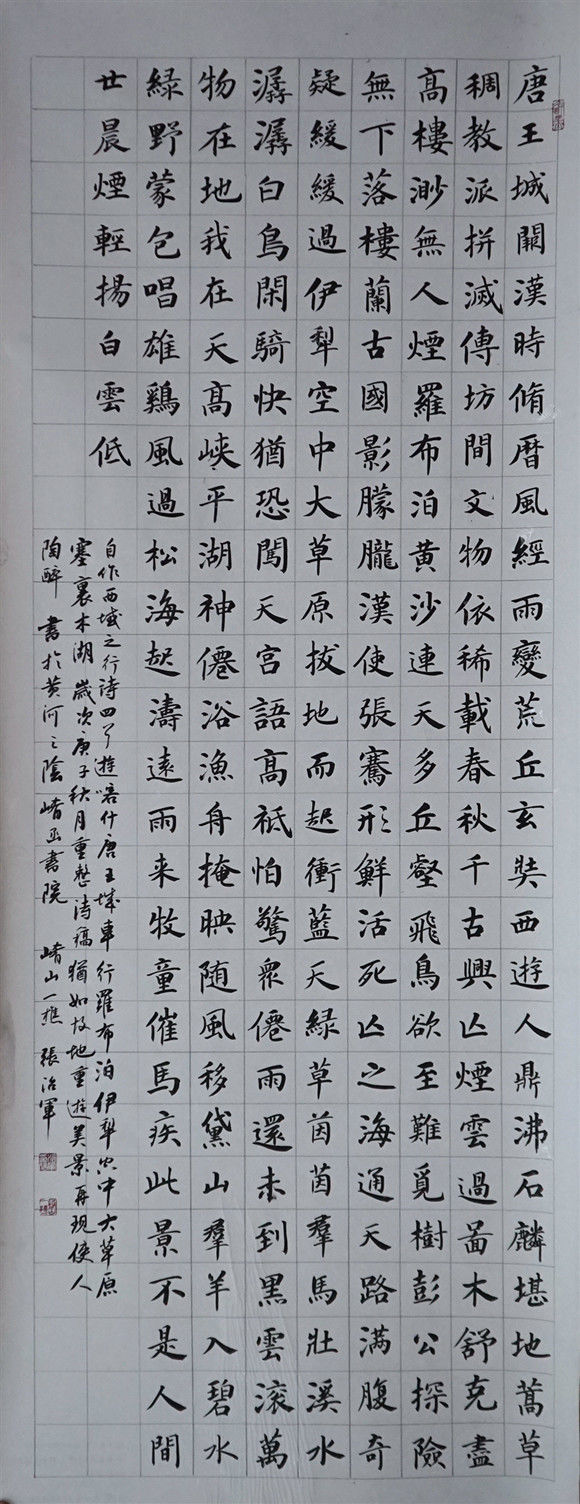 唐王城闕漢時脩曆風經雨變荒丘玄奘西遊人鼎沸石麟堪地蒿草
稠教派拼滅傳坊間文物依稀載春秋千古興亾煙雲過啚木舒克盡
高樓渺無人煙羅布泊黃沙連天多丘壑飛鳥欲至難覓樹彭公探險
無下落樓蘭古國影朦朧漢使張騫形鮮活死亾之海通天路满腹奇
疑緩緩過伊犁空中大草原拔地而起衝藍天綠草茵茵羣馬壯溪水
潺潺白鳥閑騎快猶恐闖天宮語高衹怕驚衆僊雨還未到黑雲滾萬
物在地我在天高峽平湖神僊浴漁舟掩映随風移黛山羣羊入碧水
綠野蒙包唱雄鷄風過松海起濤遠雨来牧童催馬疾此景不是人間
世晨煙輕揚白雲低
自作西域之行詩四首遊喀什唐王城車行羅布泊伊犁空中大草原
塞裏木湖歲次庚子秋月重整詩稿猶如故地重遊美景再現使人
陶醉 書於黃河之陰崤函書院 崤山一樵 張治軍